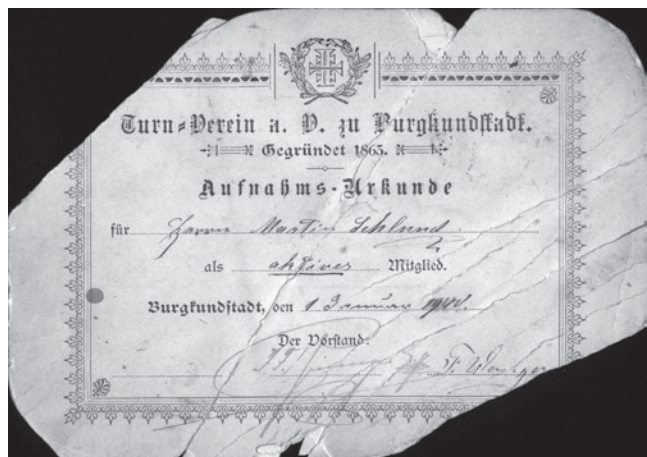 Turn-Verein a. D. zu Burgkundstadt.
Gegründet 1863.
Aufnahms-Urkunde
für Herrn Martin Schlund
als aktives Mitglied.
Burgkundstadt, den 1 Januar
Der Vorstand: